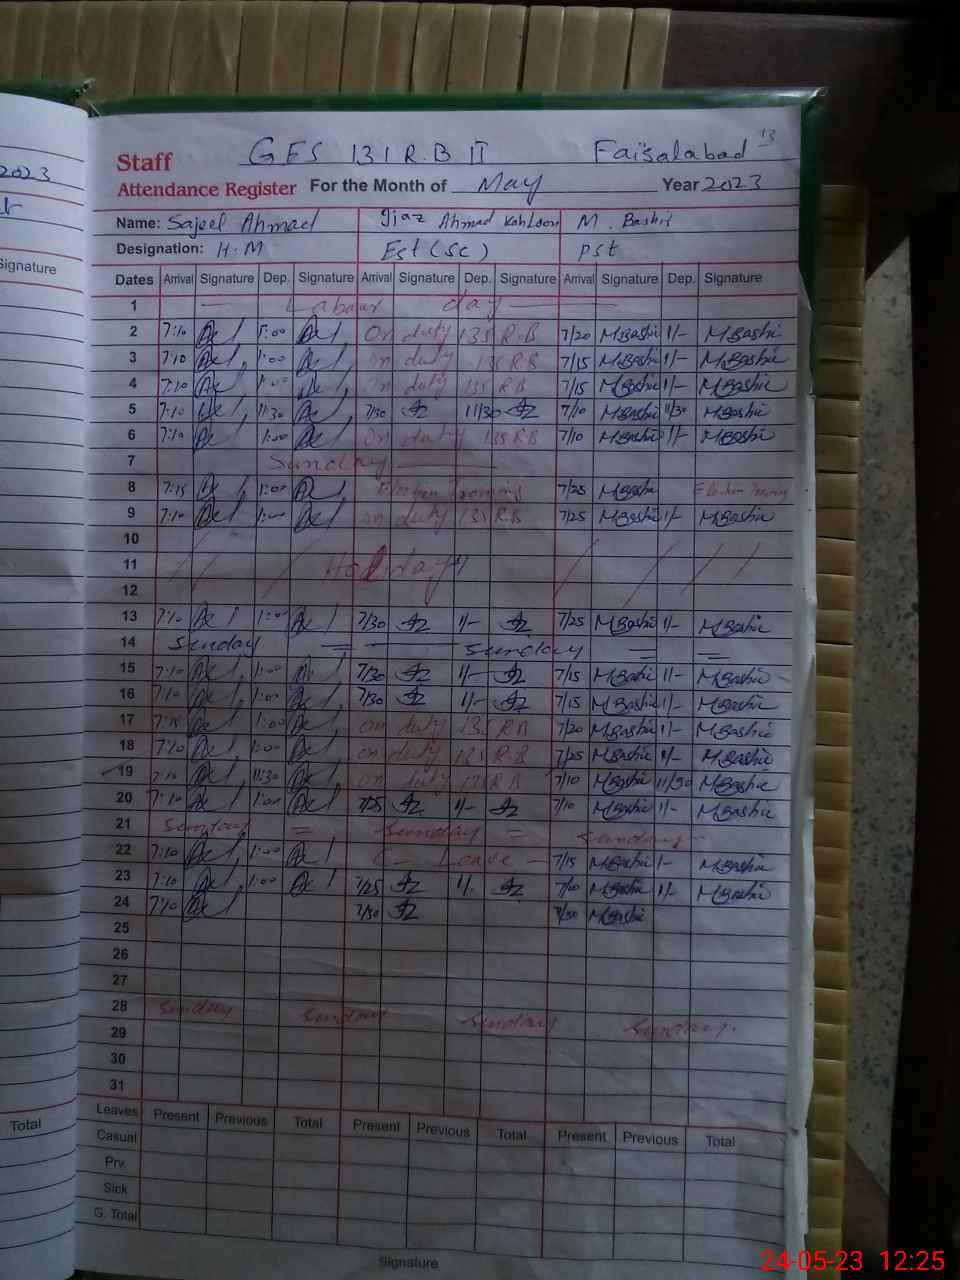 13
Staff GES 131 R.B II Faisalabad
Attendance Register For the Month of May Year 2023
2023
Name: Sajeel Ahmad Ijaz Ahmad Kahloon M. Bashir
Designation: H.M Est (SC) PST
Signature
Dates Arrival Signature Dep. Signature Arrival Signature Dep. Signature Arrival Signature Dep. Signature
1 Labour day
2 7:10 1:00 On duty 135 R.B 7/20 MBashir 1/- MBashir
3 7:10 1:00 on duty 135 R.B 7/15 MBashir 1/- MBashir
4 7:10 1:00 on duty 135 R.B 7/15 MBashir 1/- MBashir
5 7:10 11:30 7/30 11/30 7/10 MBashir 11/30 MBashir
6 7:10 1:00 on duty 135 R.B 7/10 MBashir 1/- MBashir
7 Sunday
8 7:15 1:00 Election Training 7/25 MBashir Election Training
9 7:10 1:00 on duty 135 R.B 7/25 MBashir 1/- MBashir
10
11 Holidays
12
13 7:10 1:00 7/30 1/- 7/25 MBashir 1/- MBashir
14 Sunday = Sunday = =
15 7:10 1:00 7/30 1/- 7/15 MBashir 1/- MBashir
16 7:10 1:00 7/30 1/- 7/15 MBashir 1/- MBashir
17 7:15 1:00 on duty 135 R.B 7/20 MBashir 1/- MBashir
18 7:10 1:00 on duty 135 R.B 7/25 MBashir 1/- MBashir
19 7:10 11:30 on duty 135 R.B 7/10 MBashir 11/30 MBashir
20 7:10 1:00 7/25 1/- 7/10 MBashir 1/- MBashir
21 Sunday = Sunday = Sunday -
22 7:10 1:00 C- Leave - 7/15 MBashir 1- MBashir
23 7:10 1:00 7/25 1/- 7/10 MBashir 1/- MBashir
24 7:10 7/30 7/30 MBashir
25
26
27
28 Sunday Sunday Sunday Sunday.
29
30
31
Leaves Present Previous Total Present Previous Total Present Previous Total
Total
Casual
Prv.
Sick
G. Total
Signature
24-05-23 12:25